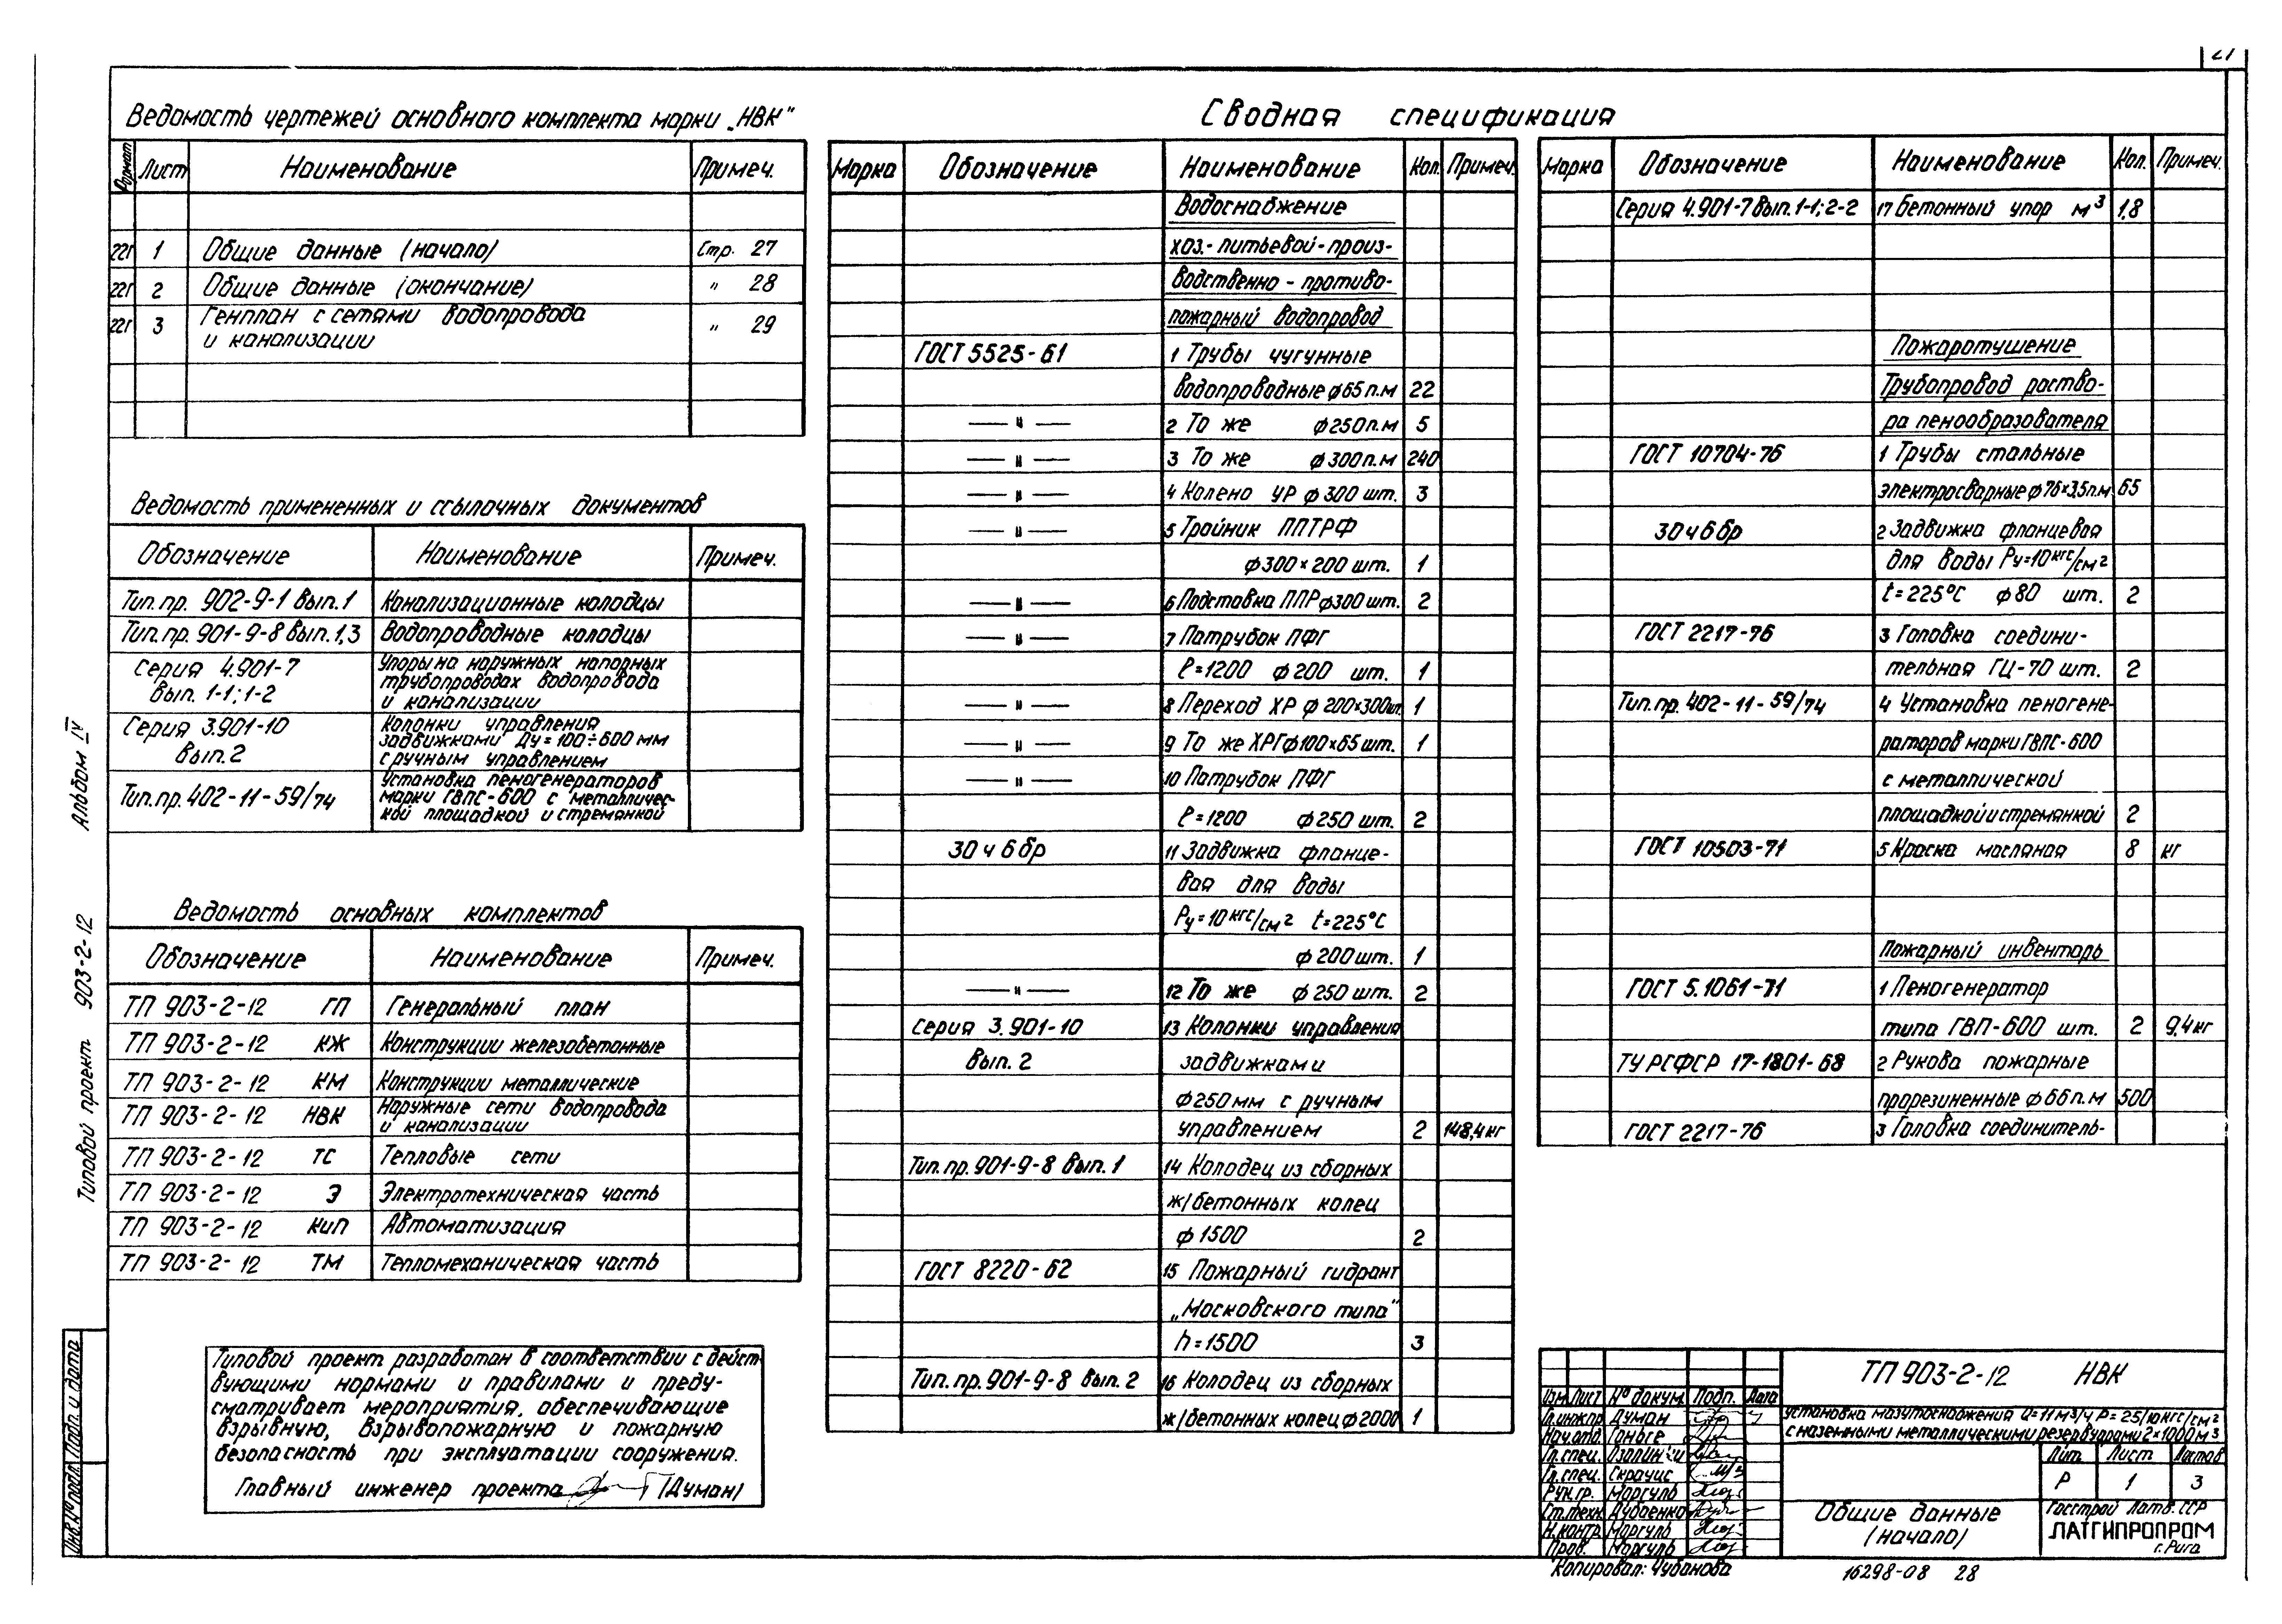 27
Ведомость чертежей основного комплекта марки „НВК"
Формат Лист Наименование Примеч.
22г 1 Общие данные (начало) Стр. 27
22г 2 Общие данные (окончание) " 28
22г 3 Генплан с сетями водопровода " 29
и канализации
Ведомость примененных и ссылочных документов
Обозначение Наименование Примеч.
Тип. пр. 902-9-1 вып. 1 Канализационные колодцы
Тип. пр. 901-9-8 вып. 1,3 Водопроводные колодцы
Серия 4.901-7 Упоры на наружных напорных
вып. 1-1; 1-2 трубопроводах водопровода
и канализации
Серия 3.901-10 Колонки управления
вып. 2 задвижками Ду=100÷600 мм
с ручным управлением
Тип. пр. 402-11-59/74 Установка пеногенераторов
марки ГВПС-600 с металличес-
кой площадкой и стремянкой
Ведомость основных комплектов
Обозначение Наименование Примеч.
ТП 903-2-12 ГП Генеральный план
ТП 903-2-12 КЖ Конструкции железобетонные
ТП 903-2-12 КМ Конструкции металлические
ТП 903-2-12 НВК Наружные сети водопровода
и канализации
ТП 903-2-12 ТС Тепловые сети
ТП 903-2-12 Э Электротехническая часть
ТП 903-2-12 КиП Автоматизация
ТП 903-2-12 ТМ Тепломеханическая часть
Типовой проект разработан в соответствии с дейст-
вующими нормами и правилами и преду-
сматривает мероприятия, обеспечивающие
взрывную, взрывопожарную и пожарную
безопасность при эксплуатации сооружения.
Главный инженер проекта (Думан)
Сводная спецификация
Марка Обозначение Наименование Кол. Примеч.
Водоснабжение
хоз.-питьевой-произ-
водственно-противо-
пожарный водопровод
ГОСТ 5525-61 1 Трубы чугунные
водопроводные ф65 п.м 22
— " — 2 То же ф250 п.м 5
— " — 3 То же ф300 п.м 240
— " — 4 Колено УР ф300 шт. 3
— " — 5 Тройник ППТРФ
ф300×200 шт. 1
— " — 6 Подставка ППР ф300 шт. 2
— " — 7 Патрубок ПФГ
ℓ=1200 ф200 шт. 1
— " — 8 Переход ХР ф200×300 шт. 1
— " — 9 То же ХРГ ф100×65 шт. 1
— " — 10 Патрубок ПФГ
ℓ=1200 ф250 шт. 2
30ч6бр 11 Задвижка фланце-
вая для воды
Ру=10кгс/см² t=225°С
ф200 шт. 1
— " — 12 То же ф250 шт. 2
Серия 3.901-10 13 Колонки управления
вып. 2 задвижками
ф250мм с ручным
управлением 2 148,4кг
Тип. пр. 901-9-8 вып. 1 14 Колодец из сборных
ж/бетонных колец
ф1500 2
ГОСТ 8220-62 15 Пожарный гидрант
„Московского типа"
h=1500 3
Тип. пр. 901-9-8 вып. 2 16 Колодец из сборных
ж/бетонных колец ф2000 1
Марка Обозначение Наименование Кол. Примеч.
Серия 4.901-7 вып. 1-1; 2-2 17 Бетонный упор м³ 1,8
Пожаротушение
Трубопровод раство-
ра пенообразователя
ГОСТ 10704-76 1 Трубы стальные
электросварные ф76×3,5 п.м 65
30ч6бр 2 Задвижка фланцевая
для воды Ру=10кгс/см²
t=225°С ф80 шт. 2
ГОСТ 2217-76 3 Головка соедини-
тельная ГЦ-70 шт. 2
Тип. пр. 402-11-59/74 4 Установка пеногене-
раторов марки ГВПС-600
с металлической
площадкой и стремянкой 2
ГОСТ 10503-71 5 Краска масляная 8 кг
Пожарный инвентарь
ГОСТ 5.1061-71 1 Пеногенератор
типа ГВП-600 шт. 2 9,4кг
ТУ РСФСР 17-1801-68 2 Рукова пожарные
прорезиненные ф66 п.м 500
ГОСТ 2217-76 3 Головка соединитель-
ТП 903-2-12 НВК
Изм. Лист № докум. Подп. Дата
Установка мазутоснабжения Q=11м³/ч Р=25/10кгс/см²
с наземными металлическими резервуарами 2×1000м³
Гл.инж.пр. Думан
Нач.отд. Гоньге
Гл.спец.
Гл.спец. Скрачис
Рук.гр. Моргуль
Ст.техн. Дубаенко
Н.контр. Моргуль
Пров. Моргуль
Лит. Лист Листов
Р 1 3
Общие данные
(начало)
Госстрой Латв. ССР
ЛАТГИПРОПРОМ
г. Рига
Копировал: Чубанова
16298-08 28
Альбом IV
Типовой проект 903-2-12
Инв.№ подл. Подп. и дата